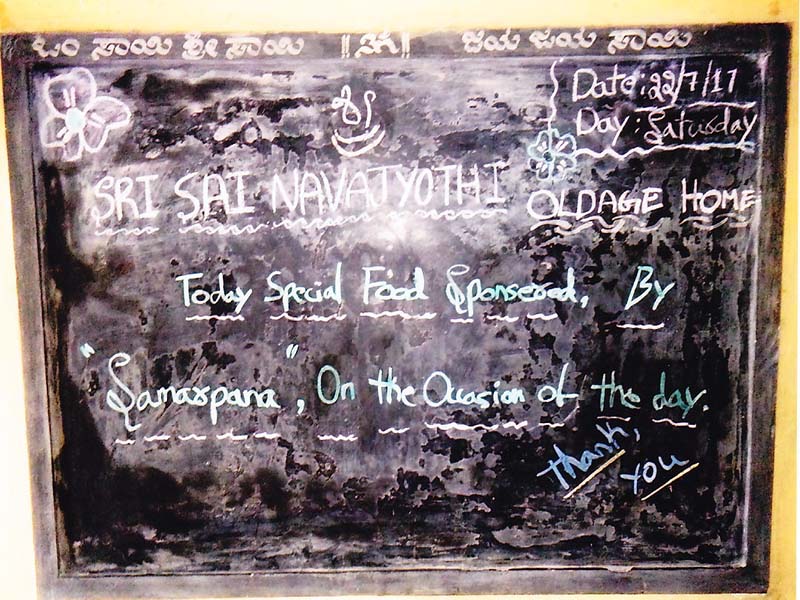 ಓಂ ಸಾಯಿ ಶ್ರೀ ಸಾಯಿ ಜಯ ಜಯ ಸಾಯಿ
Date: 22/7/17
Day: Saturday
SRI SAI NAVAJYOTHI OLDAGE HOME
Today Special Food Sponsered, By
"Samarpana", On the Occasion of the day.
Thank,
You